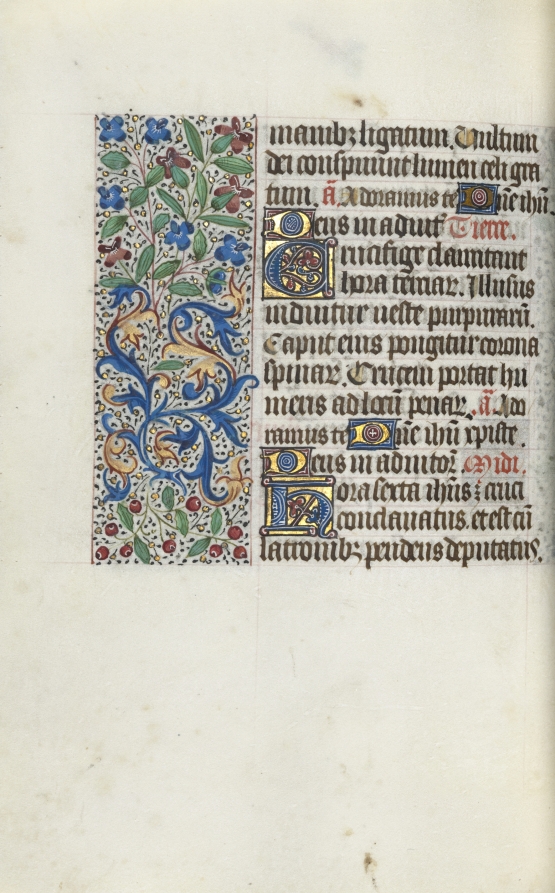 manibz ligatum. Vultum
dei conspuunt lumen celi gra
tum. a. Adoramus te Dne ihu.
Deus in adiut Tierce.
Crucifige clamitant
hora terciar. Illusus
induitur ueste purpuraru.
Caput eius pungitur corona
spinar. Crucem portat hu
meris ad locu penar. a. Ado
ramus te Dne ihu xpiste.
Deus in adiutor Midi.
Hora sexta ihus: cruci
conclauatus. et est cu
latronibz pendens deputatus.